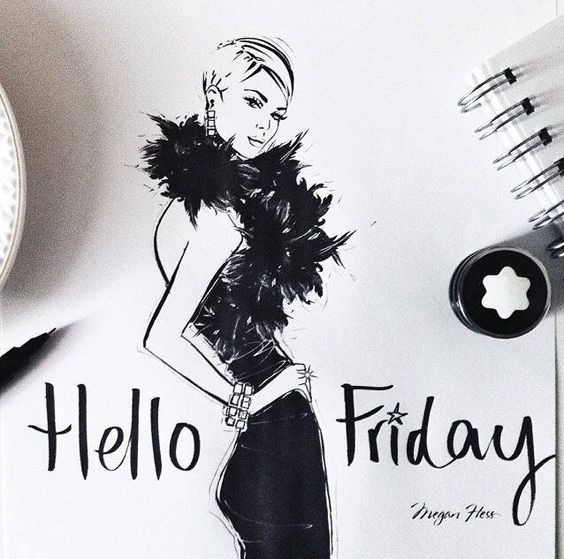 Hello Friday
Megan Hess